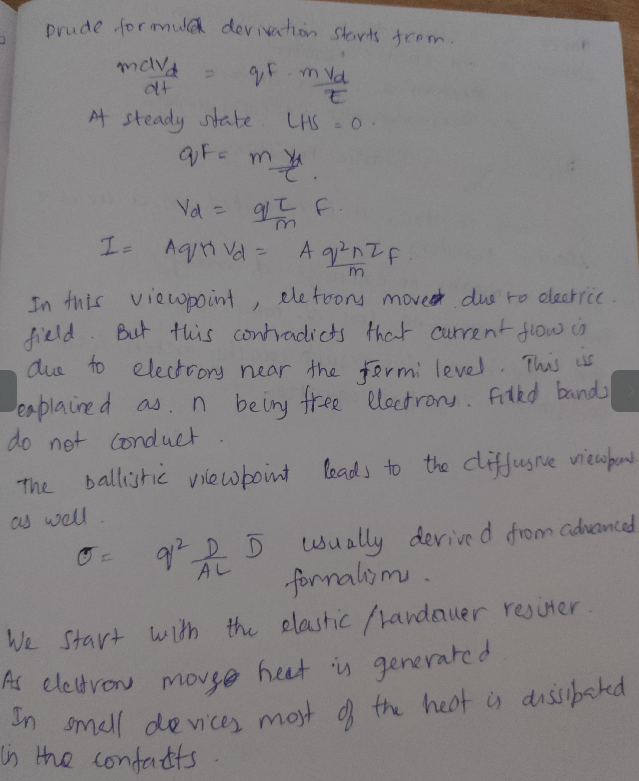 Drude formula derivation starts from.
mdVd/dt = qF - mVd/τ
At steady state LHS = 0.
qF = m Vd/τ.
Vd = qτ/m F.
I = AqnVd = A q²nτF/m
In this viewpoint, eletrons move due to electric
field. But this contradicts that current flow is
due to electrons near the fermi level. This is
explained as. n being free electrons. Filled bands
do not conduct.
The ballistic viewpoint leads to the diffusive viewpoint
as well.
σ = q² D/AL D̄ usually derived from advanced
formalism.
We start with the elastic / Landauer resister.
As electrons move heat is generated
In small devices most of the heat is dissipated
in the contacts.